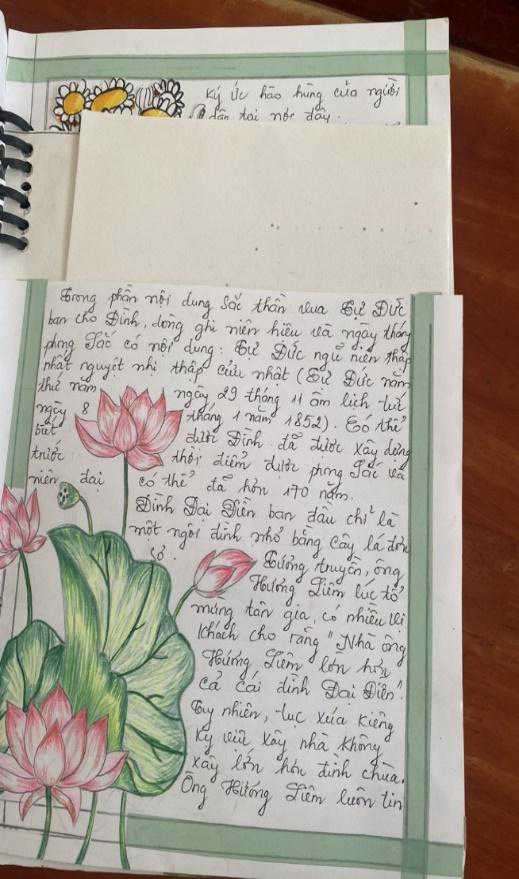 Ký ức hào hùng của người
dân tại nơi đây.
Trong phần nội dung Sắc thần vua Tự Đức
ban cho Đình, dòng ghi niên hiệu và ngày tháng
phong Sắc có nội dung: Tự Đức ngũ niên thập
nhất nguyệt nhị thập cửu nhật (Tự Đức năm
thứ năm ngày 29 tháng 11 âm lịch tức
ngày 8 tháng 1 năm 1852). Có thể
biết được Đình đã được xây dựng
trước thời điểm được phong Sắc và
niên đại có thể đã hơn 170 năm.
Đình Đại Điền ban đầu chỉ là
một ngôi đình nhỏ bằng cây lá đơn
sơ.
Tương truyền, ông
Hương Liêm lúc tổ
mừng tân gia, có nhiều vị
khách cho rằng "Nhà ông
Hương Liêm lớn hơn
cả cái đình Đại Điền".
Tuy nhiên, tục xưa kiêng
kỵ việc xây nhà không
xây lớn hơn đình chùa.
Ông Hương Liêm luôn tin